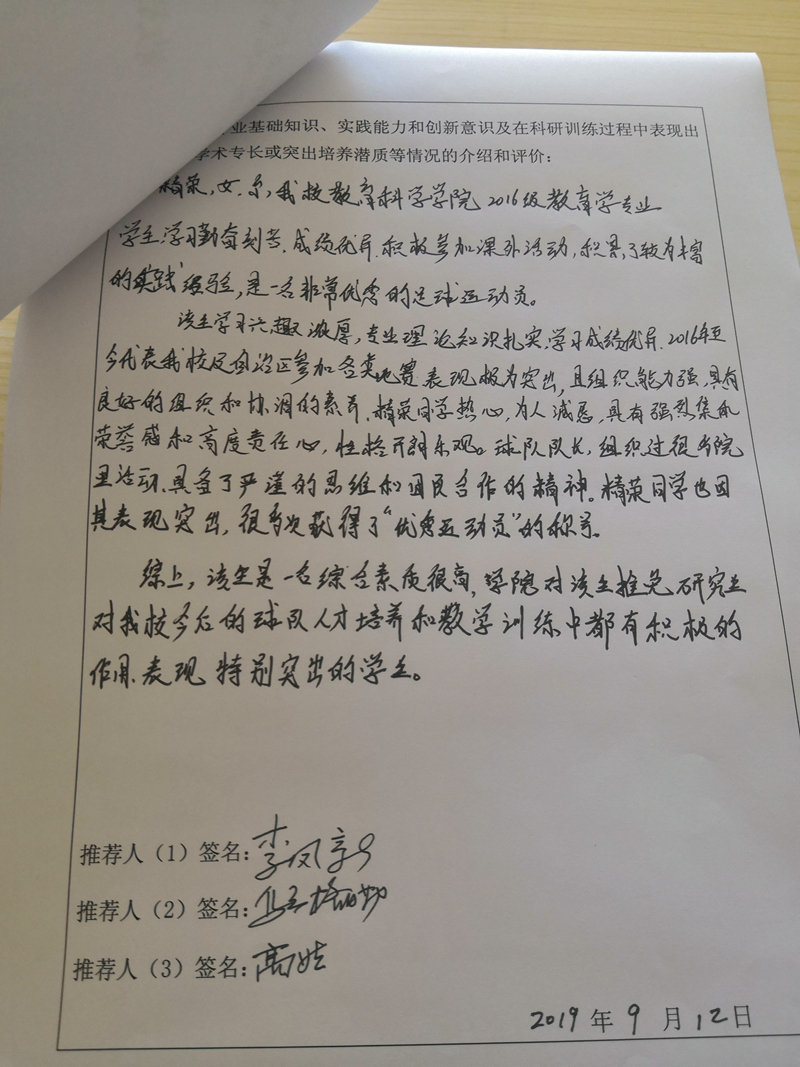 业基础知识、实践能力和创新意识及在科研训练过程中表现出
学术专长或突出培养潜质等情况的介绍和评价：
精荣，女，系，我校教育科学学院2016级教育学专业
学生，学习勤奋刻苦，成绩优异，积极参加课外活动，积累了较为丰富
的实践经验，是一名非常优秀的足球运动员。
该生学习兴趣浓厚，专业理论知识扎实，学习成绩优异，2016年至
今代表我校及自治区参加各类比赛表现极为突出，且组织能力强，具有
良好的组织和协调的素养，精荣同学热心，为人诚恳，具有强烈集体
荣誉感和高度责任心，性格开朗乐观。球队队长，组织过很多院
里活动，具备了严谨的思维和团队合作的精神。精荣同学也因
其表现突出，很多次获得了“优秀运动员”的称号。
综上，该生是一名综合素质很高，学院对该生推免研究生
对我校今后的球队人才培养和教学训练中都有积极的
作用，表现特别突出的学生。
推荐人（1）签名：李凤
推荐人（2）签名：
推荐人（3）签名：高娃
2019年9月12日